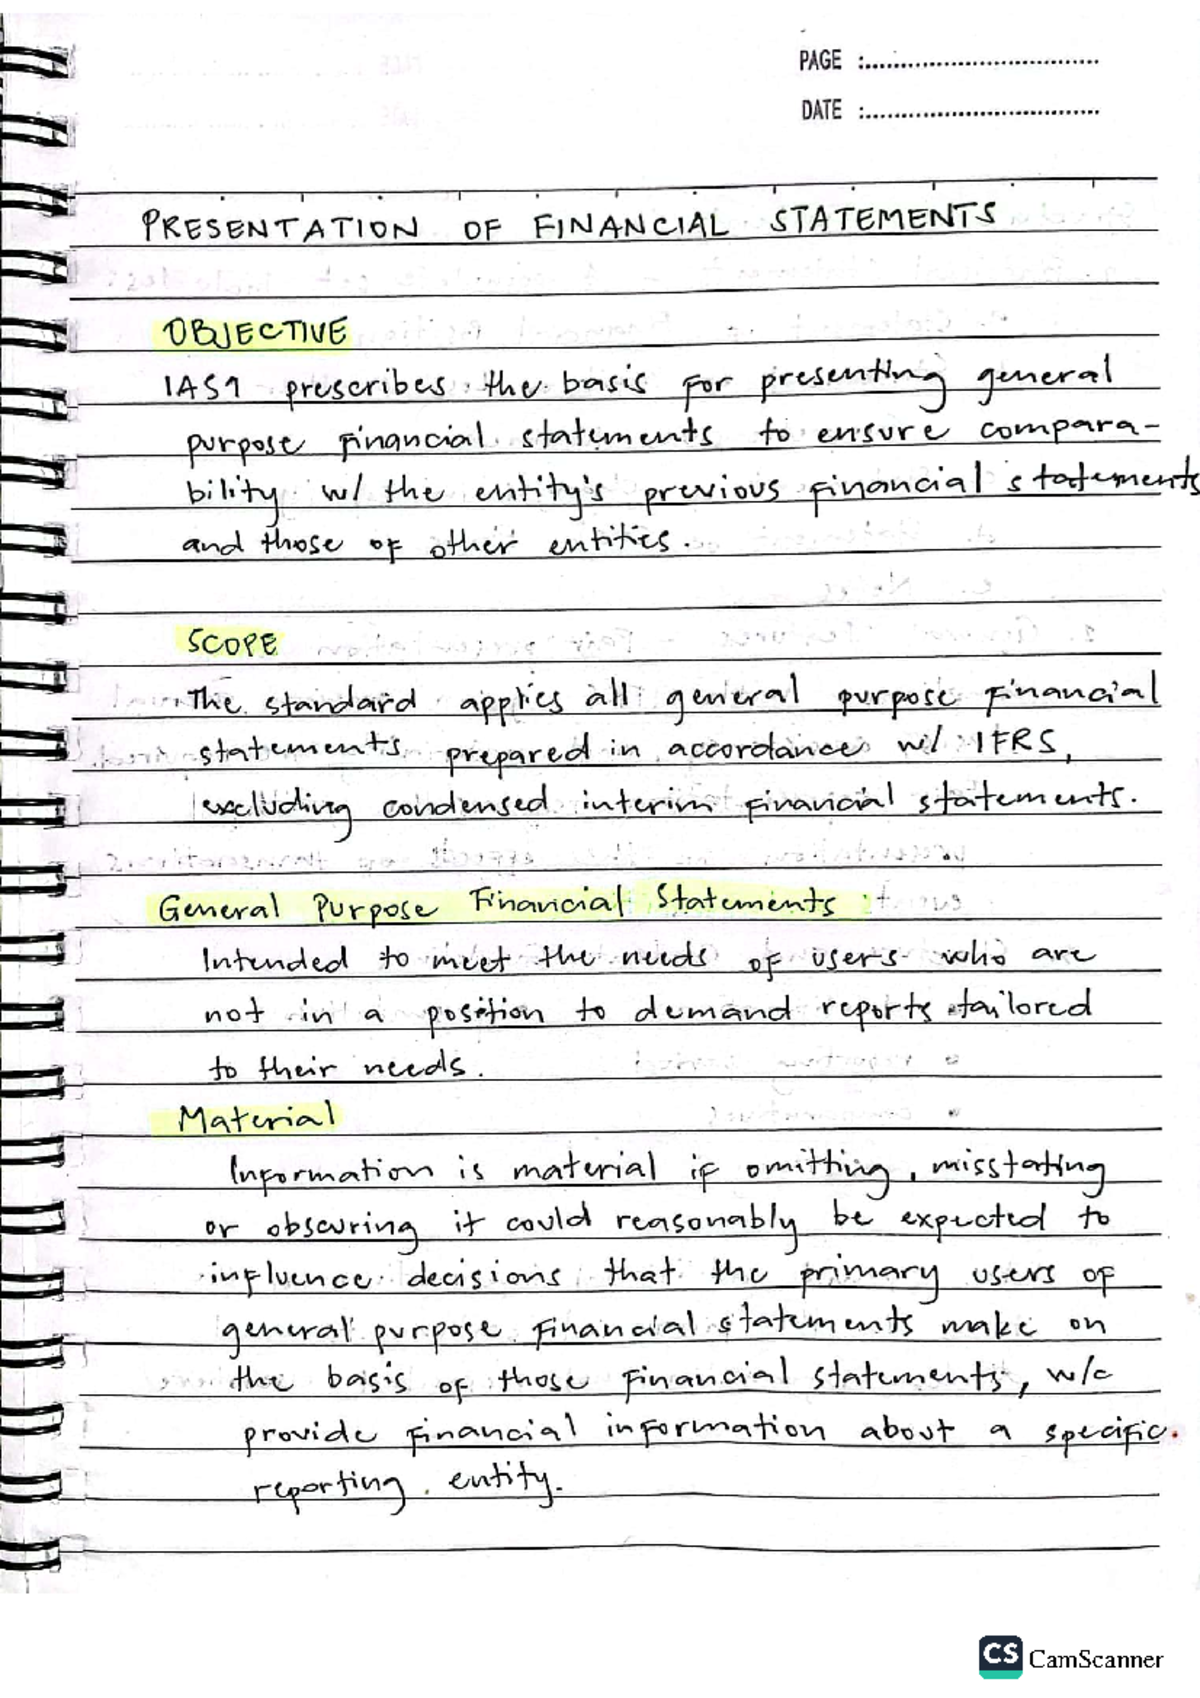 PAGE :..................................
DATE :..................................
PRESENTATION OF FINANCIAL STATEMENTS
OBJECTIVE
IAS1 prescribes the basis for presenting general
purpose financial statements to ensure compara-
bility w/ the entity's previous financial statements
and those of other entities.
SCOPE
The standard applies all general purpose financial
statements prepared in accordance w/ IFRS,
excluding condensed interim financial statements.
General Purpose Financial Statements :
Intended to meet the needs of users who are
not in a position to demand reports tailored
to their needs.
Material
Information is material if omitting, misstating
or obscuring it could reasonably be expected to
influence decisions that the primary users of
general purpose financial statements make on
the basis of those financial statements, w/c
provide financial information about a specific
reporting entity.
CS CamScanner